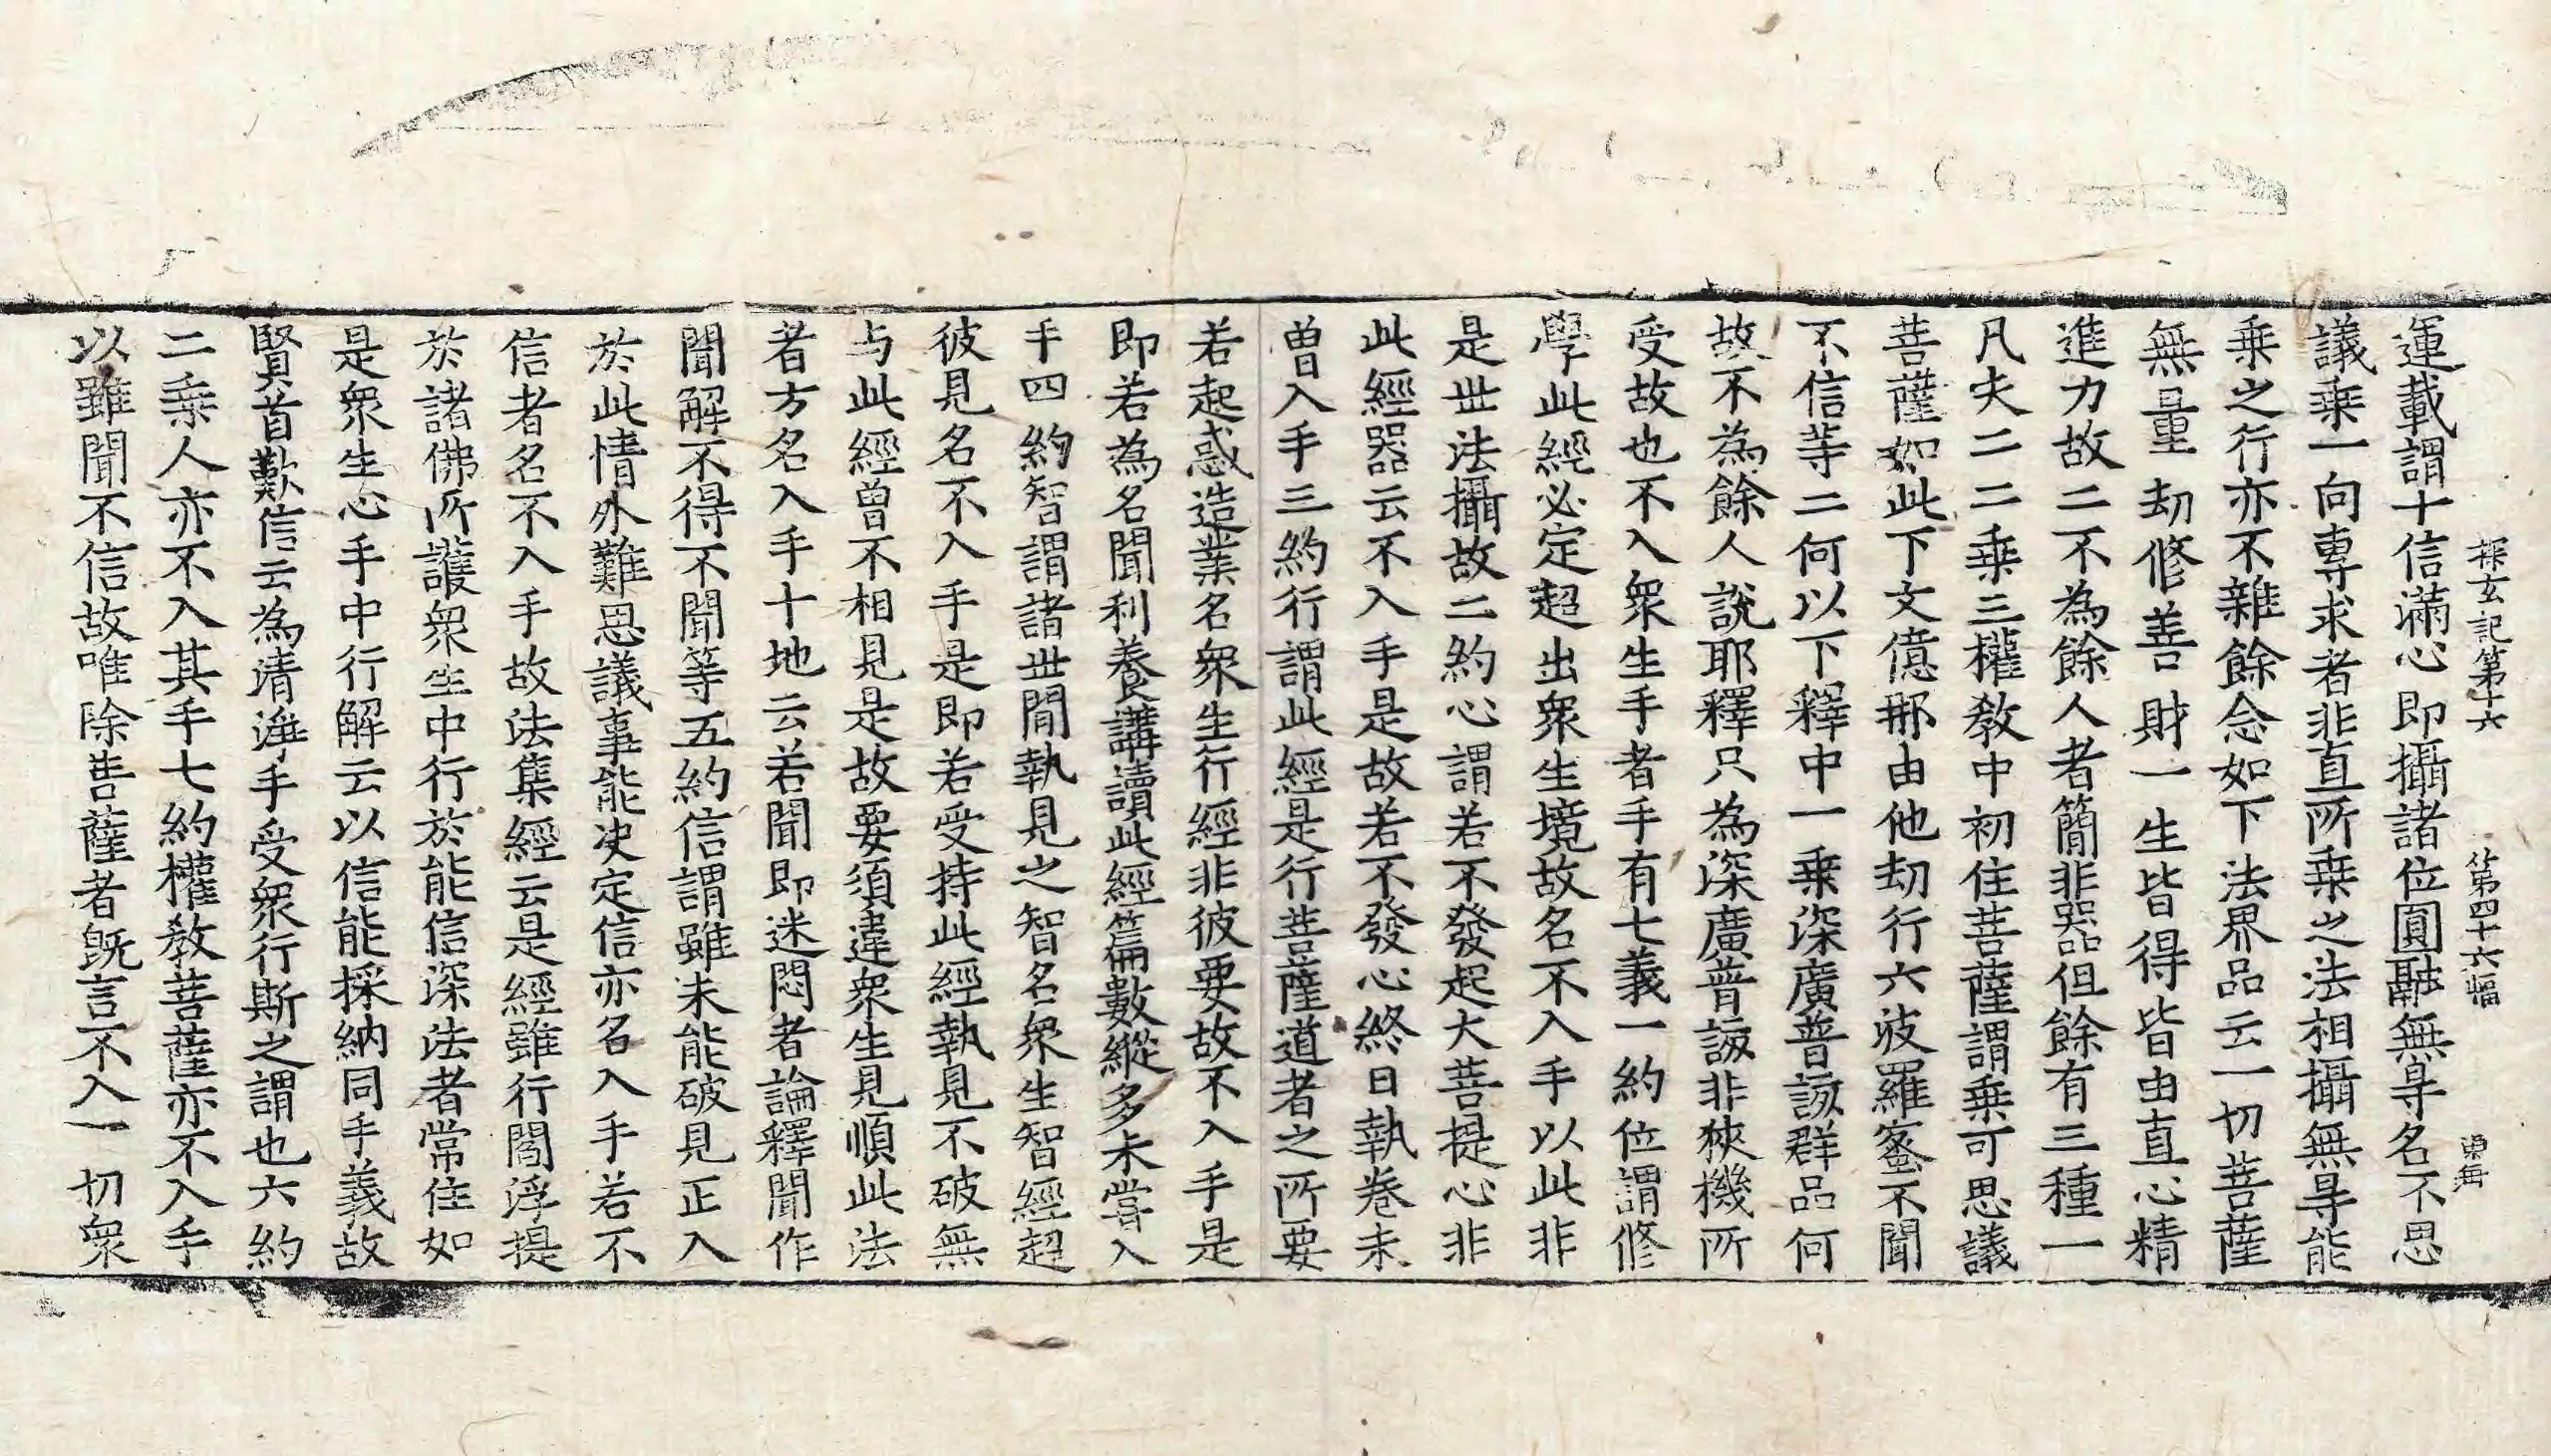 探玄記第十六　第四十六幅
運載謂十信滿心即攝諸位圓融無㝵名不思
議乗一向専求者非直所乗之法相攝無㝵能
乗之行亦不雜餘念如下法界品云一切菩薩
無量劫修善財一生皆得皆由直心精
進力故二不為餘人者簡非器但餘有三種一
凡夫二二乗三權教中初住菩薩謂乗可思議
菩薩如此下文億那由他劫行六波羅宻不聞
不信等二何以下釋中一乗深廣普該群品何
故不為餘人說耶釋只為深廣普該非狹機所
受故也不入衆生手者手有七義一約位謂修
學此經必定超出衆生境故名不入手以此非
是世法攝故二約心謂若不發起大菩提心非
此經器云不入手是故若不發心終日執卷未
曽入手三約行謂此經是行菩薩道者之所要
若起惑造業名衆生行經非彼要故不入手是
即若為名聞利養講讀此經篇數縱多未甞入
手四約智謂諸世間執見之智名衆生智經超
彼見名不入手是即若受持此經執見不破無
与此經曽不相見是故要須違衆生見順此法
者方名入手十地云若聞即迷悶者論釋聞作
聞解不得不聞等五約信謂雖未能破見正入
於此情外難思議事能决定信亦名入手若不
信者名不入手故法集經云是經雖行閻浮提
於諸佛所護衆生中行於能信深法者常住如
是衆生心手中行解云以信能採納同手義故
賢首歎信云為清淨手受衆行斯之謂也六約
二乗人亦不入其手七約權教菩薩亦不入手
以雖聞不信故唯除菩薩者旣言不入一切衆